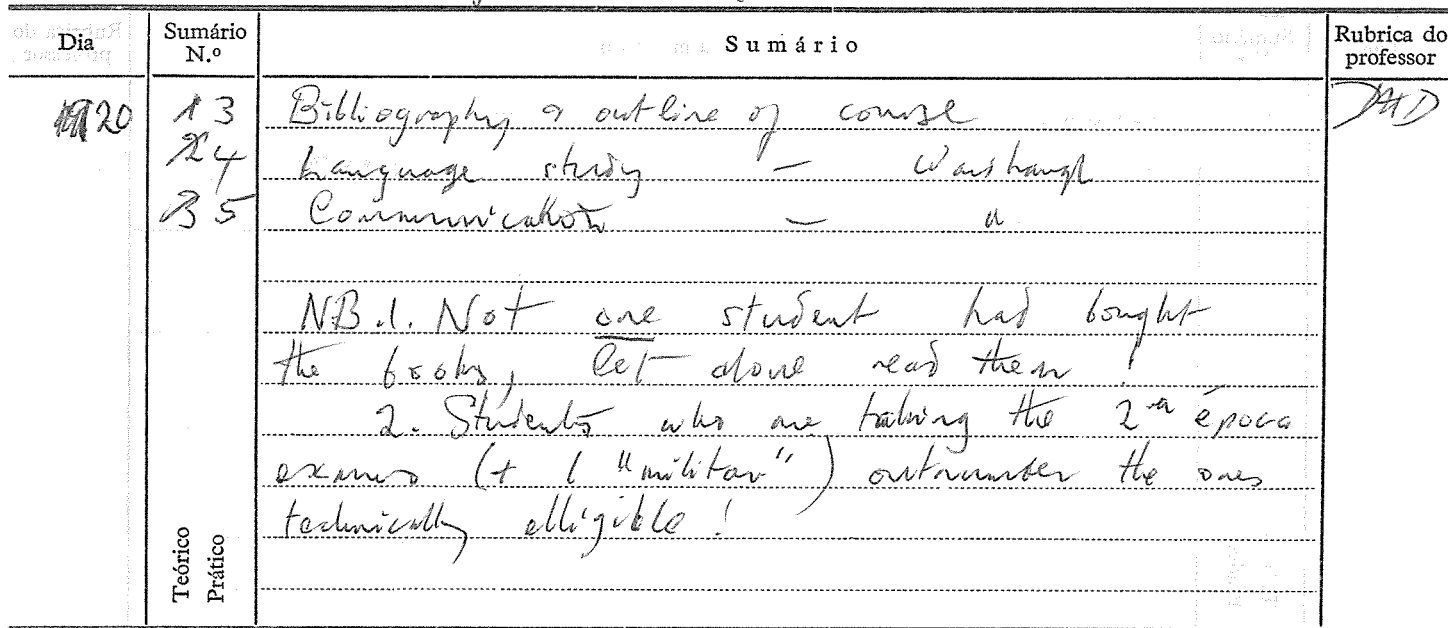 Dia Sumário N.º Sumário Rubrica do professor
20 13 Bibliography & outline of course
24 Language study — Wardhaugh
35 Communication — "
NB.1. Not one student had bought
the books, let alone read them!
2. Students who are taking the 2ª época
exames (+ 1 "militar") outnumber the ones
technically elligible!
Teórico
Prático